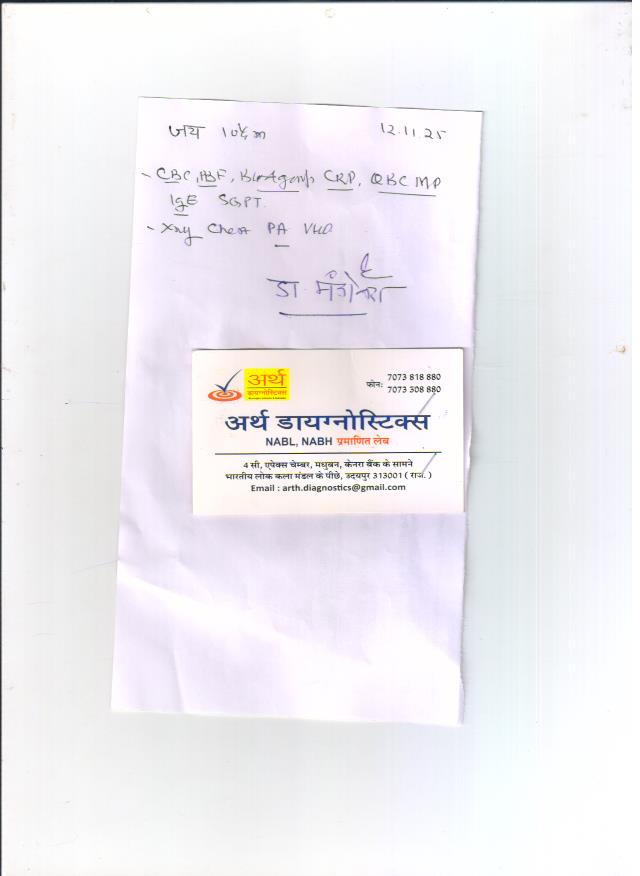 जय 12.11.25
- CBC, PBF, CRP, QBC MP
IgE SGPT.
- Xray Chest PA
डा.
अर्थ
डायग्नोस्टिक्स
फोन: 7073 818 880
7073 308 880
अर्थ डायग्नोस्टिक्स
NABL, NABH प्रमाणित लेब
4 सी, एपेक्स चेम्बर, मधुबन, केनरा बैंक के सामने
भारतीय लोक कला मंडल के पीछे, उदयपुर 313001 ( राज. )
Email : arth.diagnostics@gmail.com